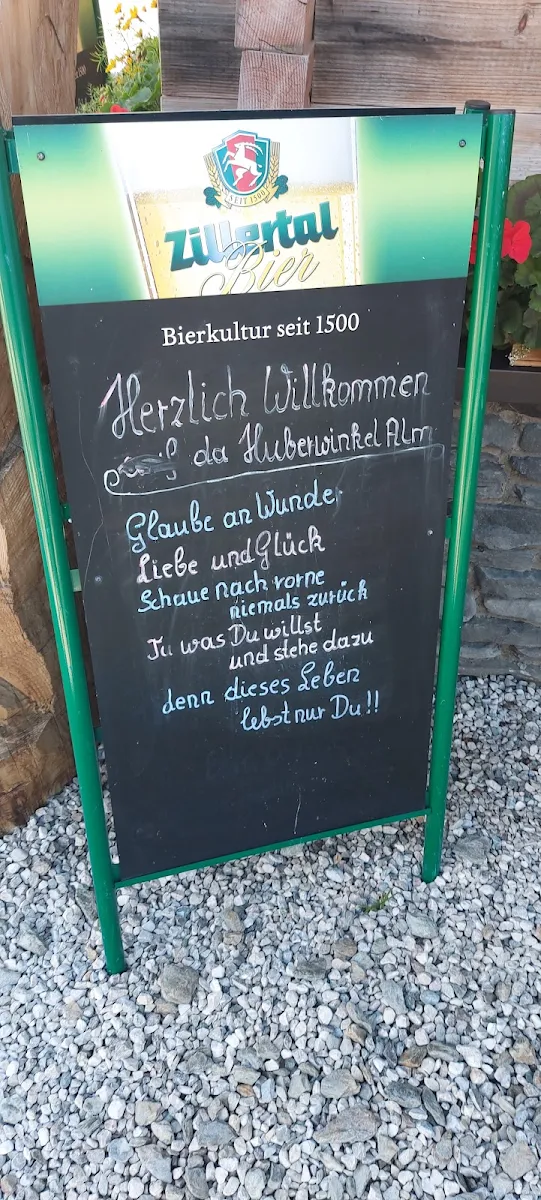 SEIT 1500
Zillertal
Bier
Bierkultur seit 1500
Herzlich Willkommen
auf da Huberwinkel Alm
Glaube an Wunder
Liebe und Glück
Schaue nach vorne
niemals zurück
Tu was Du willst
und stehe dazu
denn dieses Leben
lebst nur Du!!